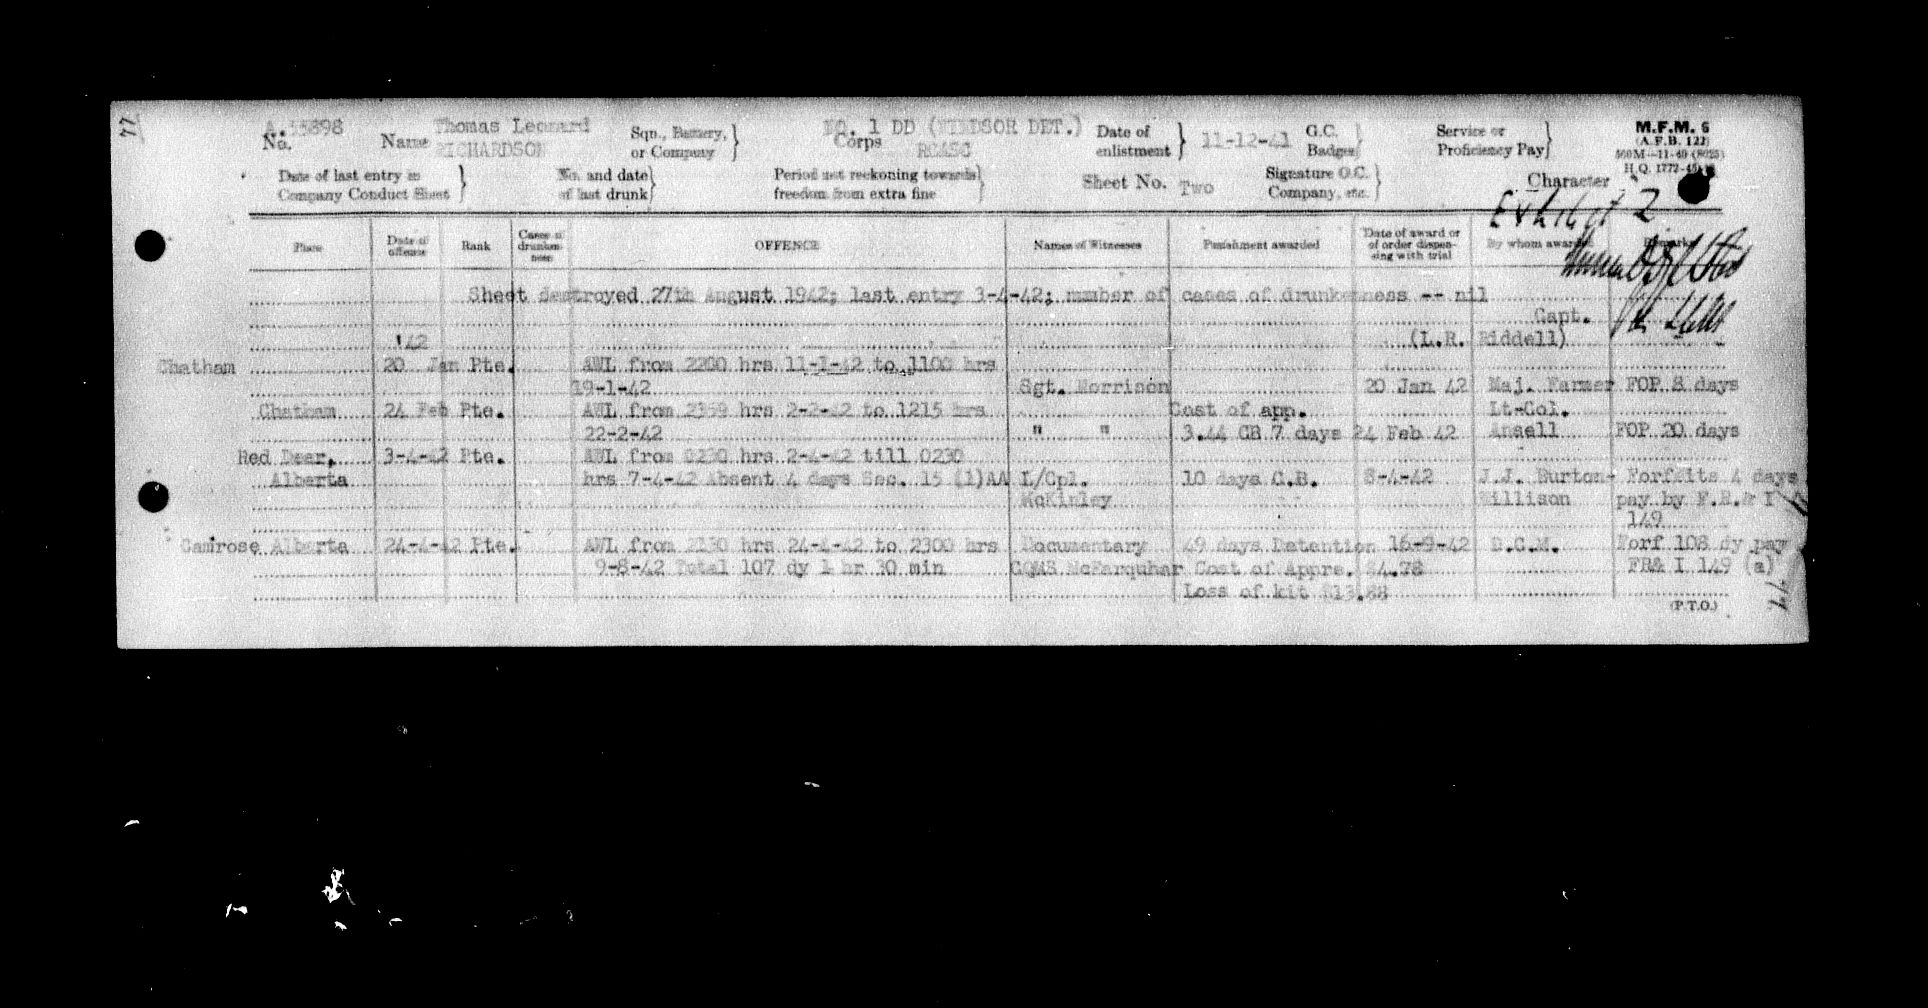 77
A.55898 Thomas Leonard NO. 1 DD (WINDSOR DET.)
No. Name RICHARDSON Sqn., Battery, or Company Corps RCASC Date of enlistment 11-12-41 G.C. Badges Service or Proficiency Pay
M.F.M. 6
(A.F.B. 122)
H.Q. 1772-
Date of last entry in Company Conduct Sheet No. and date of last drunk Period not reckoning towards freedom from extra fine Sheet No. Two Signature O.C. Company, etc. Character
Exhibit 2
Place Date of offence Rank Cases of drunkenness OFFENCE Names of Witnesses Punishment awarded Date of award or of order dispensing with trial By whom awarded Remarks
Sheet destroyed 27th August 1942; last entry 3-4-42; number of cases of drunkenness -- nil
Capt.
'42 (L.R. Riddell)
Chatham 20 Jan Pte. AWL from 2200 hrs 11-1-42 to 1100 hrs
19-1-42 Sgt. Morrison 20 Jan 42 Maj. Farmer FOP 8 days
Chatham 24 Feb Pte. AWL from 2359 hrs 2-2-42 to 1215 hrs Cost of app. Lt-Col.
22-2-42 " " 3.44 CB 7 days 24 Feb 42 Ansell FOP 20 days
Red Deer, 3-4-42 Pte. AWL from 0230 hrs 2-4-42 till 0230
Alberta hrs 7-4-42 Absent 4 days Sec. 15 (1)AA L/Cpl. 10 days C.B. 8-4-42 J.J. Burton- Forfeits 4 days
McKinley Willison pay by F.R.& I
149
Camrose Alberta 24-4-42 Pte. AWL from 2130 hrs 24-4-42 to 2300 hrs Documentary 49 days Detention 16-9-42 D.C.M. Forf 108 dy pay
9-8-42 Total 107 dy 1 hr 30 min CQMS McFarquhar Cost of Appre. $4.78 FR& I 149 (a)
Loss of kit $13.88
(P.T.O.)
77